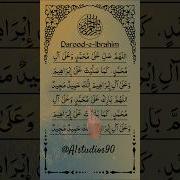 Darood-e-Ibrahim
اللهم صل على محمد وعلى آل
محمد، كما صليت على إبراهيم
وعلى آل إبراهيم إنك حميد مجيد
اللهم بارك على محمد وعلى آل
محمد، كما باركت على إبراهيم
وعلى آل إبراهيم إنك حميد مجيد
@A1studios90